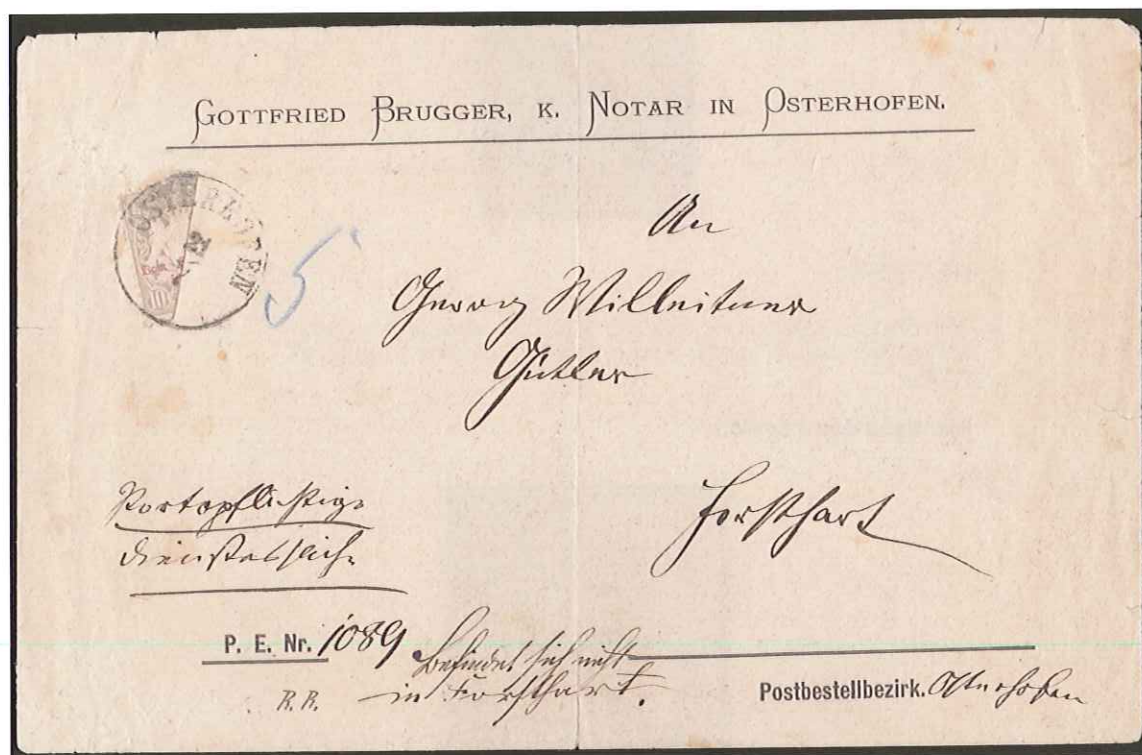 GOTTFRIED BRUGGER, K. NOTAR IN OSTERHOFEN.
OSTERHOFEN
12
5
An
Georg Willeitner
Gütler
Forsthart
Portopflichtige
Dienstessache
P. E. Nr. 1089
Befindet sich nicht
in Forsthart.
R. R.
Postbestellbezirk. Osterhofen